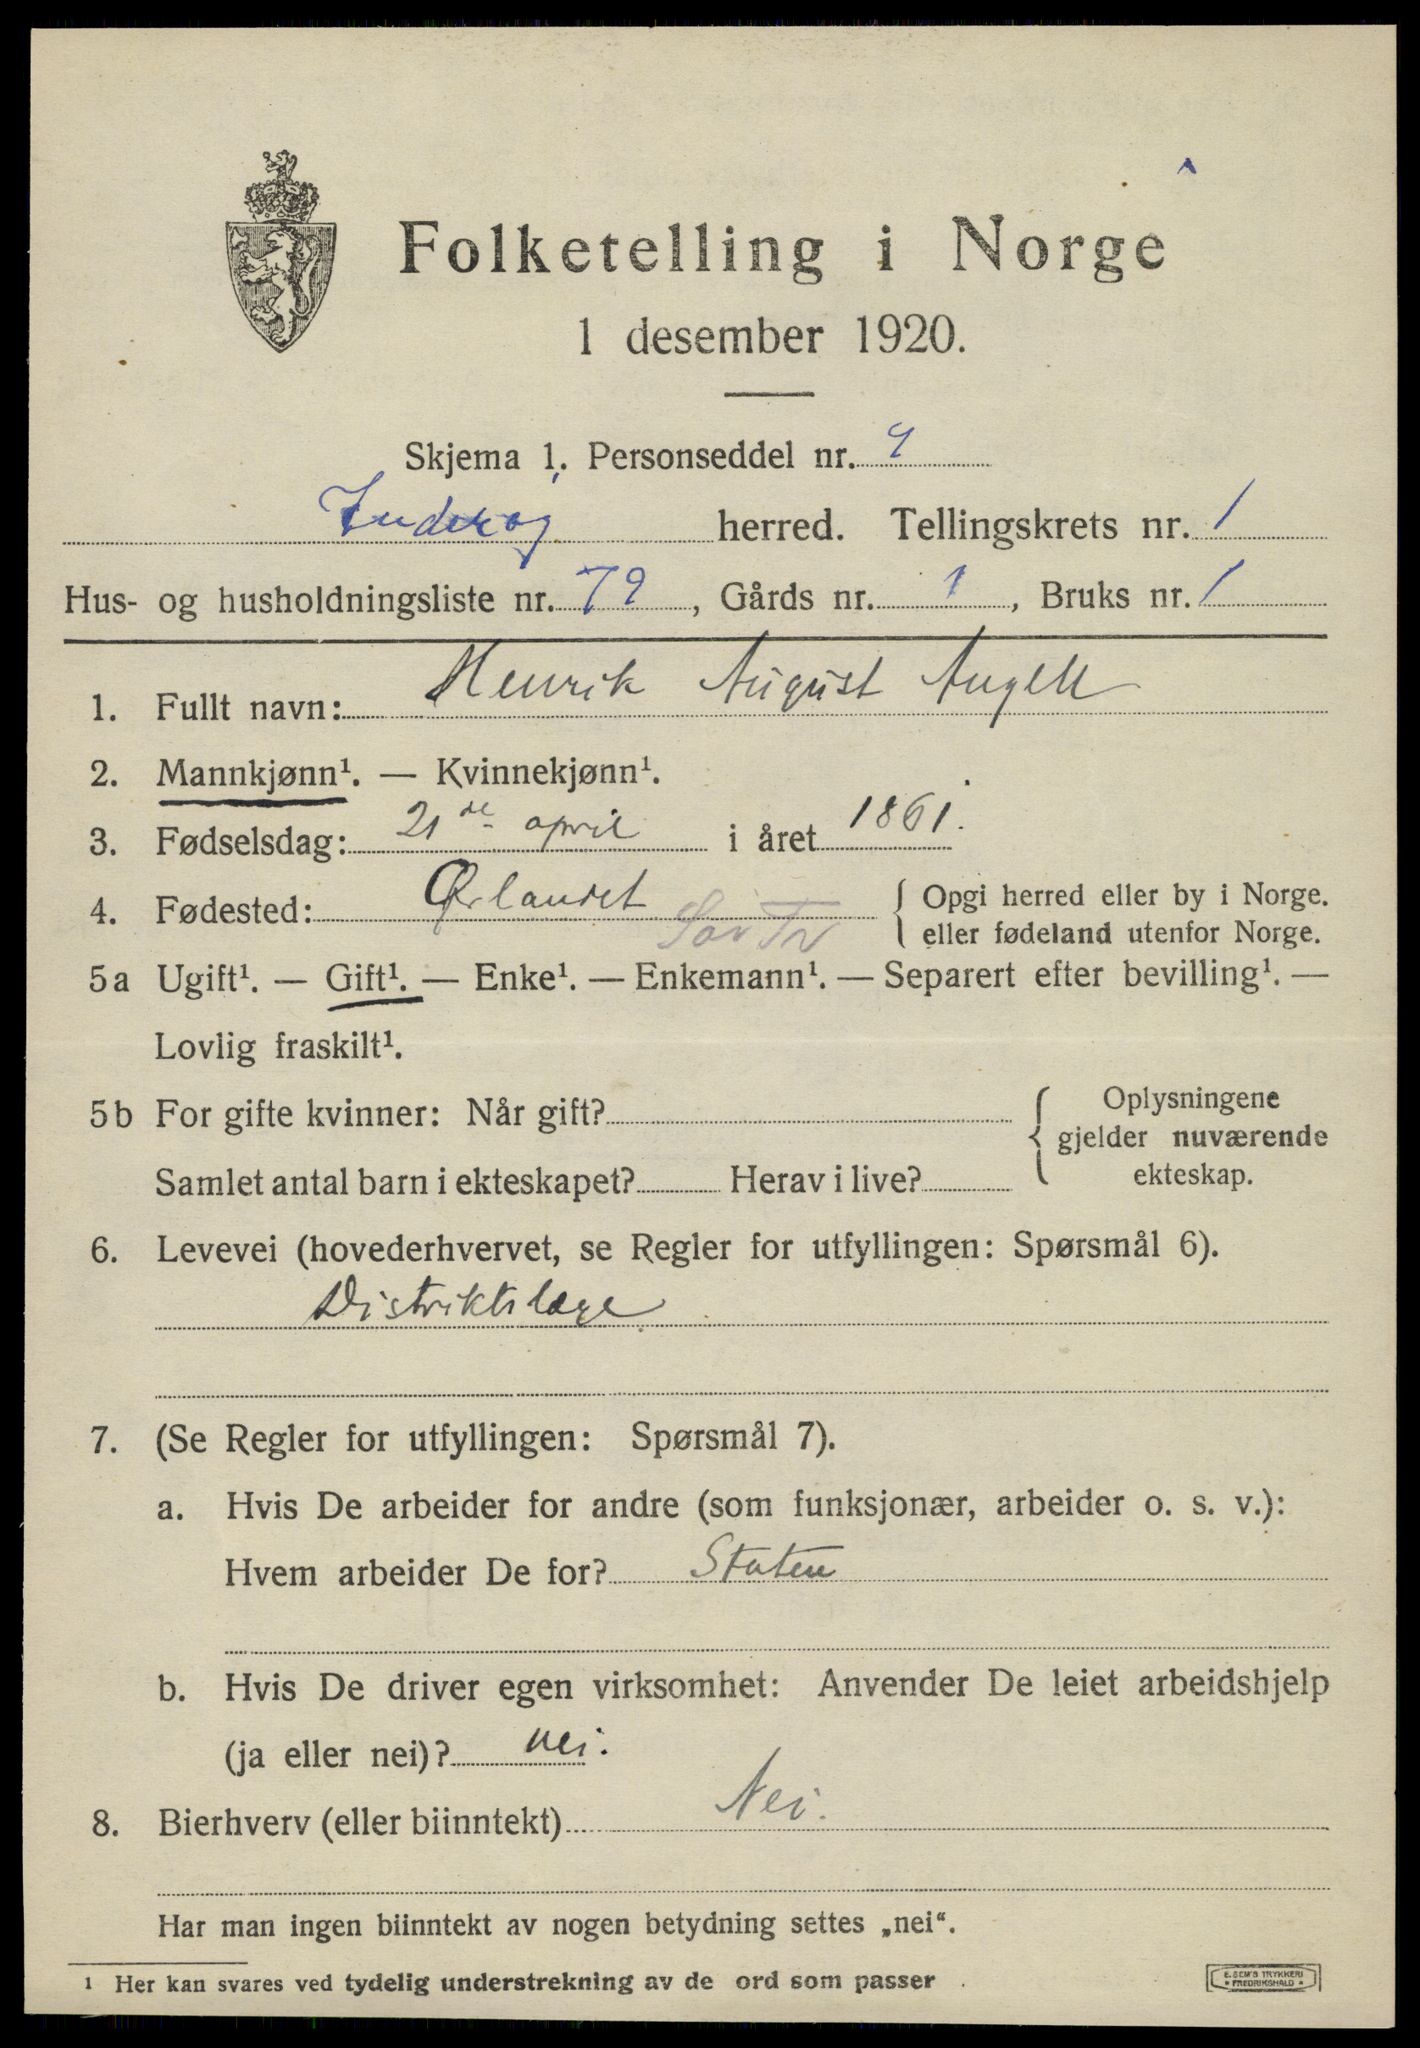 Folketelling i Norge
1 desember 1920.
Skjema 1. Personseddel nr. 4
Inderøy herred. Tellingskrets nr. 1
Hus- og husholdningsliste nr. 79, Gårds nr. 1, Bruks nr. 1
1. Fullt navn: Henrik August Angell
2. Mannkjønn¹. — Kvinnekjønn¹.
3. Fødselsdag: 21de april i året 1861.
4. Fødested: Ørlandet Sør Tr { Opgi herred eller by i Norge.
eller fødeland utenfor Norge.
5a Ugift¹. — Gift¹. — Enke¹. — Enkemann¹. — Separert efter bevilling¹. —
Lovlig fraskilt¹.
5b For gifte kvinner: Når gift? { Oplysningene
gjelder nuværende
Samlet antal barn i ekteskapet? Herav i live? ekteskap.
6. Levevei (hovederhvervet, se Regler for utfyllingen: Spørsmål 6).
Distriktslæge
7. (Se Regler for utfyllingen: Spørsmål 7).
a. Hvis De arbeider for andre (som funksjonær, arbeider o. s. v.):
Hvem arbeider De for? Staten
b. Hvis De driver egen virksomhet: Anvender De leiet arbeidshjelp
(ja eller nei)? nei.
8. Bierhverv (eller biinntekt) Nei.
Har man ingen biinntekt av nogen betydning settes „nei“.
¹ Her kan svares ved tydelig understrekning av de ord som passer
E. SEM'S TRYKKERI
FREDRIKSHALD